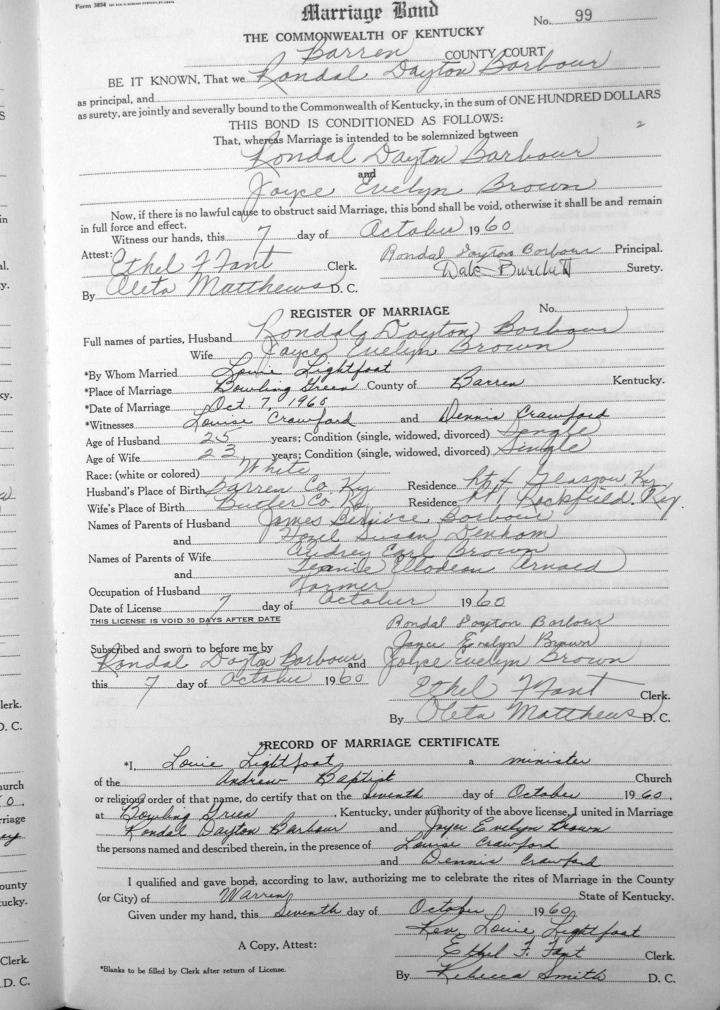 Form 3854
Marriage Bond
No. 99
THE COMMONWEALTH OF KENTUCKY
Barren COUNTY COURT
BE IT KNOWN, That we Rondal Dayton Barbour
as principal, and
as surety, are jointly and severally bound to the Commonwealth of Kentucky, in the sum of ONE HUNDRED DOLLARS
THIS BOND IS CONDITIONED AS FOLLOWS:
That, whereas Marriage is intended to be solemnized between
Rondal Dayton Barbour
and
Joyce Evelyn Brown
Now, if there is no lawful cause to obstruct said Marriage, this bond shall be void, otherwise it shall be and remain
in full force and effect.
Witness our hands, this 7 day of October 1960
Attest: Rondal Dayton Barbour Principal.
Ethel F Fant Clerk. Dale Burchett Surety.
By Oleta Matthews D. C.
REGISTER OF MARRIAGE No.
Full names of parties, Husband Rondal Dayton Barbour
Wife Joyce Evelyn Brown
*By Whom Married Louie Lightfoot
*Place of Marriage Bowling Green County of Barren Kentucky.
*Date of Marriage Oct. 7, 1960
*Witnesses Louise Crawford and Dennis Crawford
Age of Husband 25 years; Condition (single, widowed, divorced) Single
Age of Wife 23 years; Condition (single, widowed, divorced) Single
Race: (white or colored) White
Husband's Place of Birth Barren Co. Ky Residence Rt 4 Glasgow Ky
Wife's Place of Birth Butler Co. Ky Residence Rt 1 Rockfield. Ky.
Names of Parents of Husband James Bernice Barbour
and Hazel Susan Denham
Names of Parents of Wife Audrey Earl Brown
and Elodean Arnold
Occupation of Husband Farmer
Date of License 7 day of October 1960
THIS LICENSE IS VOID 30 DAYS AFTER DATE
Rondal Dayton Barbour
Subscribed and sworn to before me by Joyce Evelyn Brown
Rondal Dayton Barbour and Joyce Evelyn Brown
this 7 day of October 1960
Ethel F Fant Clerk.
By Oleta Matthews D. C.
*RECORD OF MARRIAGE CERTIFICATE
*I, Louie Lightfoot a minister
of the Andrew Baptist Church
or religious order of that name, do certify that on the seventh day of October 1960,
at Bowling Green, Kentucky, under authority of the above license, I united in Marriage
Rondal Dayton Barbour and Joyce Evelyn Brown
the persons named and described therein, in the presence of Louise Crawford
and Dennis Crawford
I qualified and gave bond, according to law, authorizing me to celebrate the rites of Marriage in the County
(or City) of Warren State of Kentucky.
Given under my hand, this Seventh day of October 1960
Rev. Louie Lightfoot
A Copy, Attest: Ethel F. Fant Clerk.
*Blanks to be filled by Clerk after return of License. By Rebecca Smith D. C.